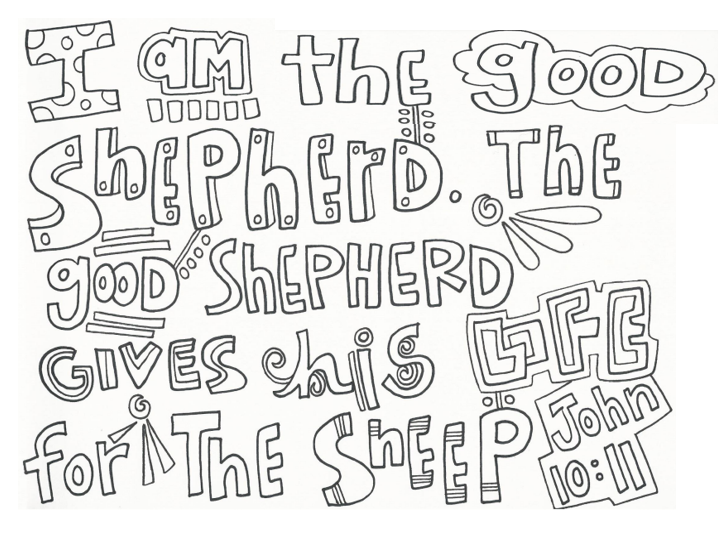 I am the good
Shepherd. The
good Shepherd
Gives his Life
for The Sheep
John
10:11